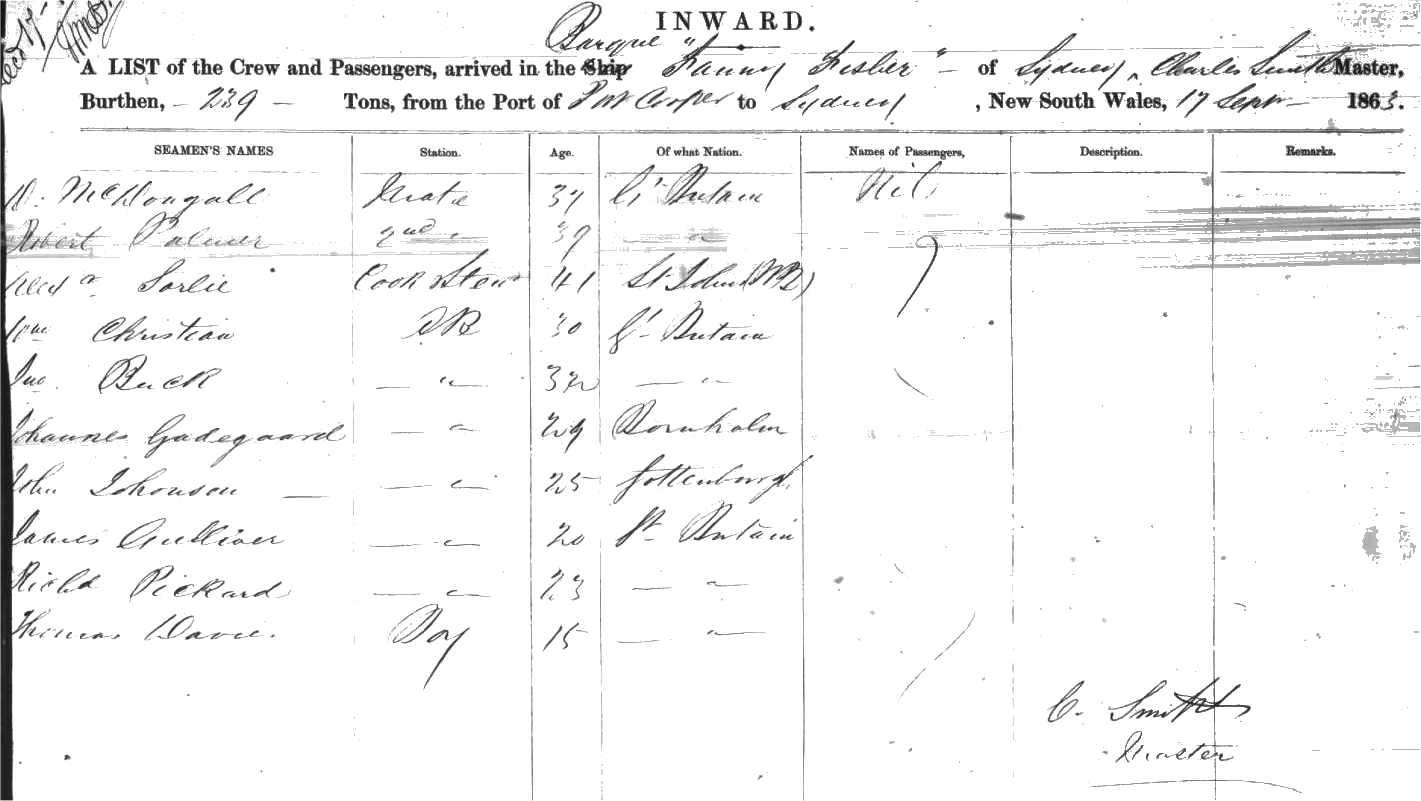 INWARD.
Barque
A LIST of the Crew and Passengers, arrived in the Ship "Fanny Fisher" of Sydney, Charles Smith Master,
Burthen, - 239 - Tons, from the Port of Port Cooper to Sydney, New South Wales, 17 Septr 1863.
SEAMEN'S NAMES Station. Age. Of what Nation. Names of Passengers, Description. Remarks.
D. McDougall Mate 37 Gt Britain Nil
Robert Palmer 2nd " 39 — "
Alexr Sorlie Cook & Stewd 41 St Johns (NB)
Wm Christian AB 30 Gt Britain
Jno. Buck — " — 32 — " —
Johannes Gadegaard — " 29 Bornholm
John Johonson — — " 25 Gottenburgh
James Gulliver — " 20 Gt Britain
Richd Pickard — " 23 — "
Thomas Davie. Boy 15 — " —
C. Smith
Master